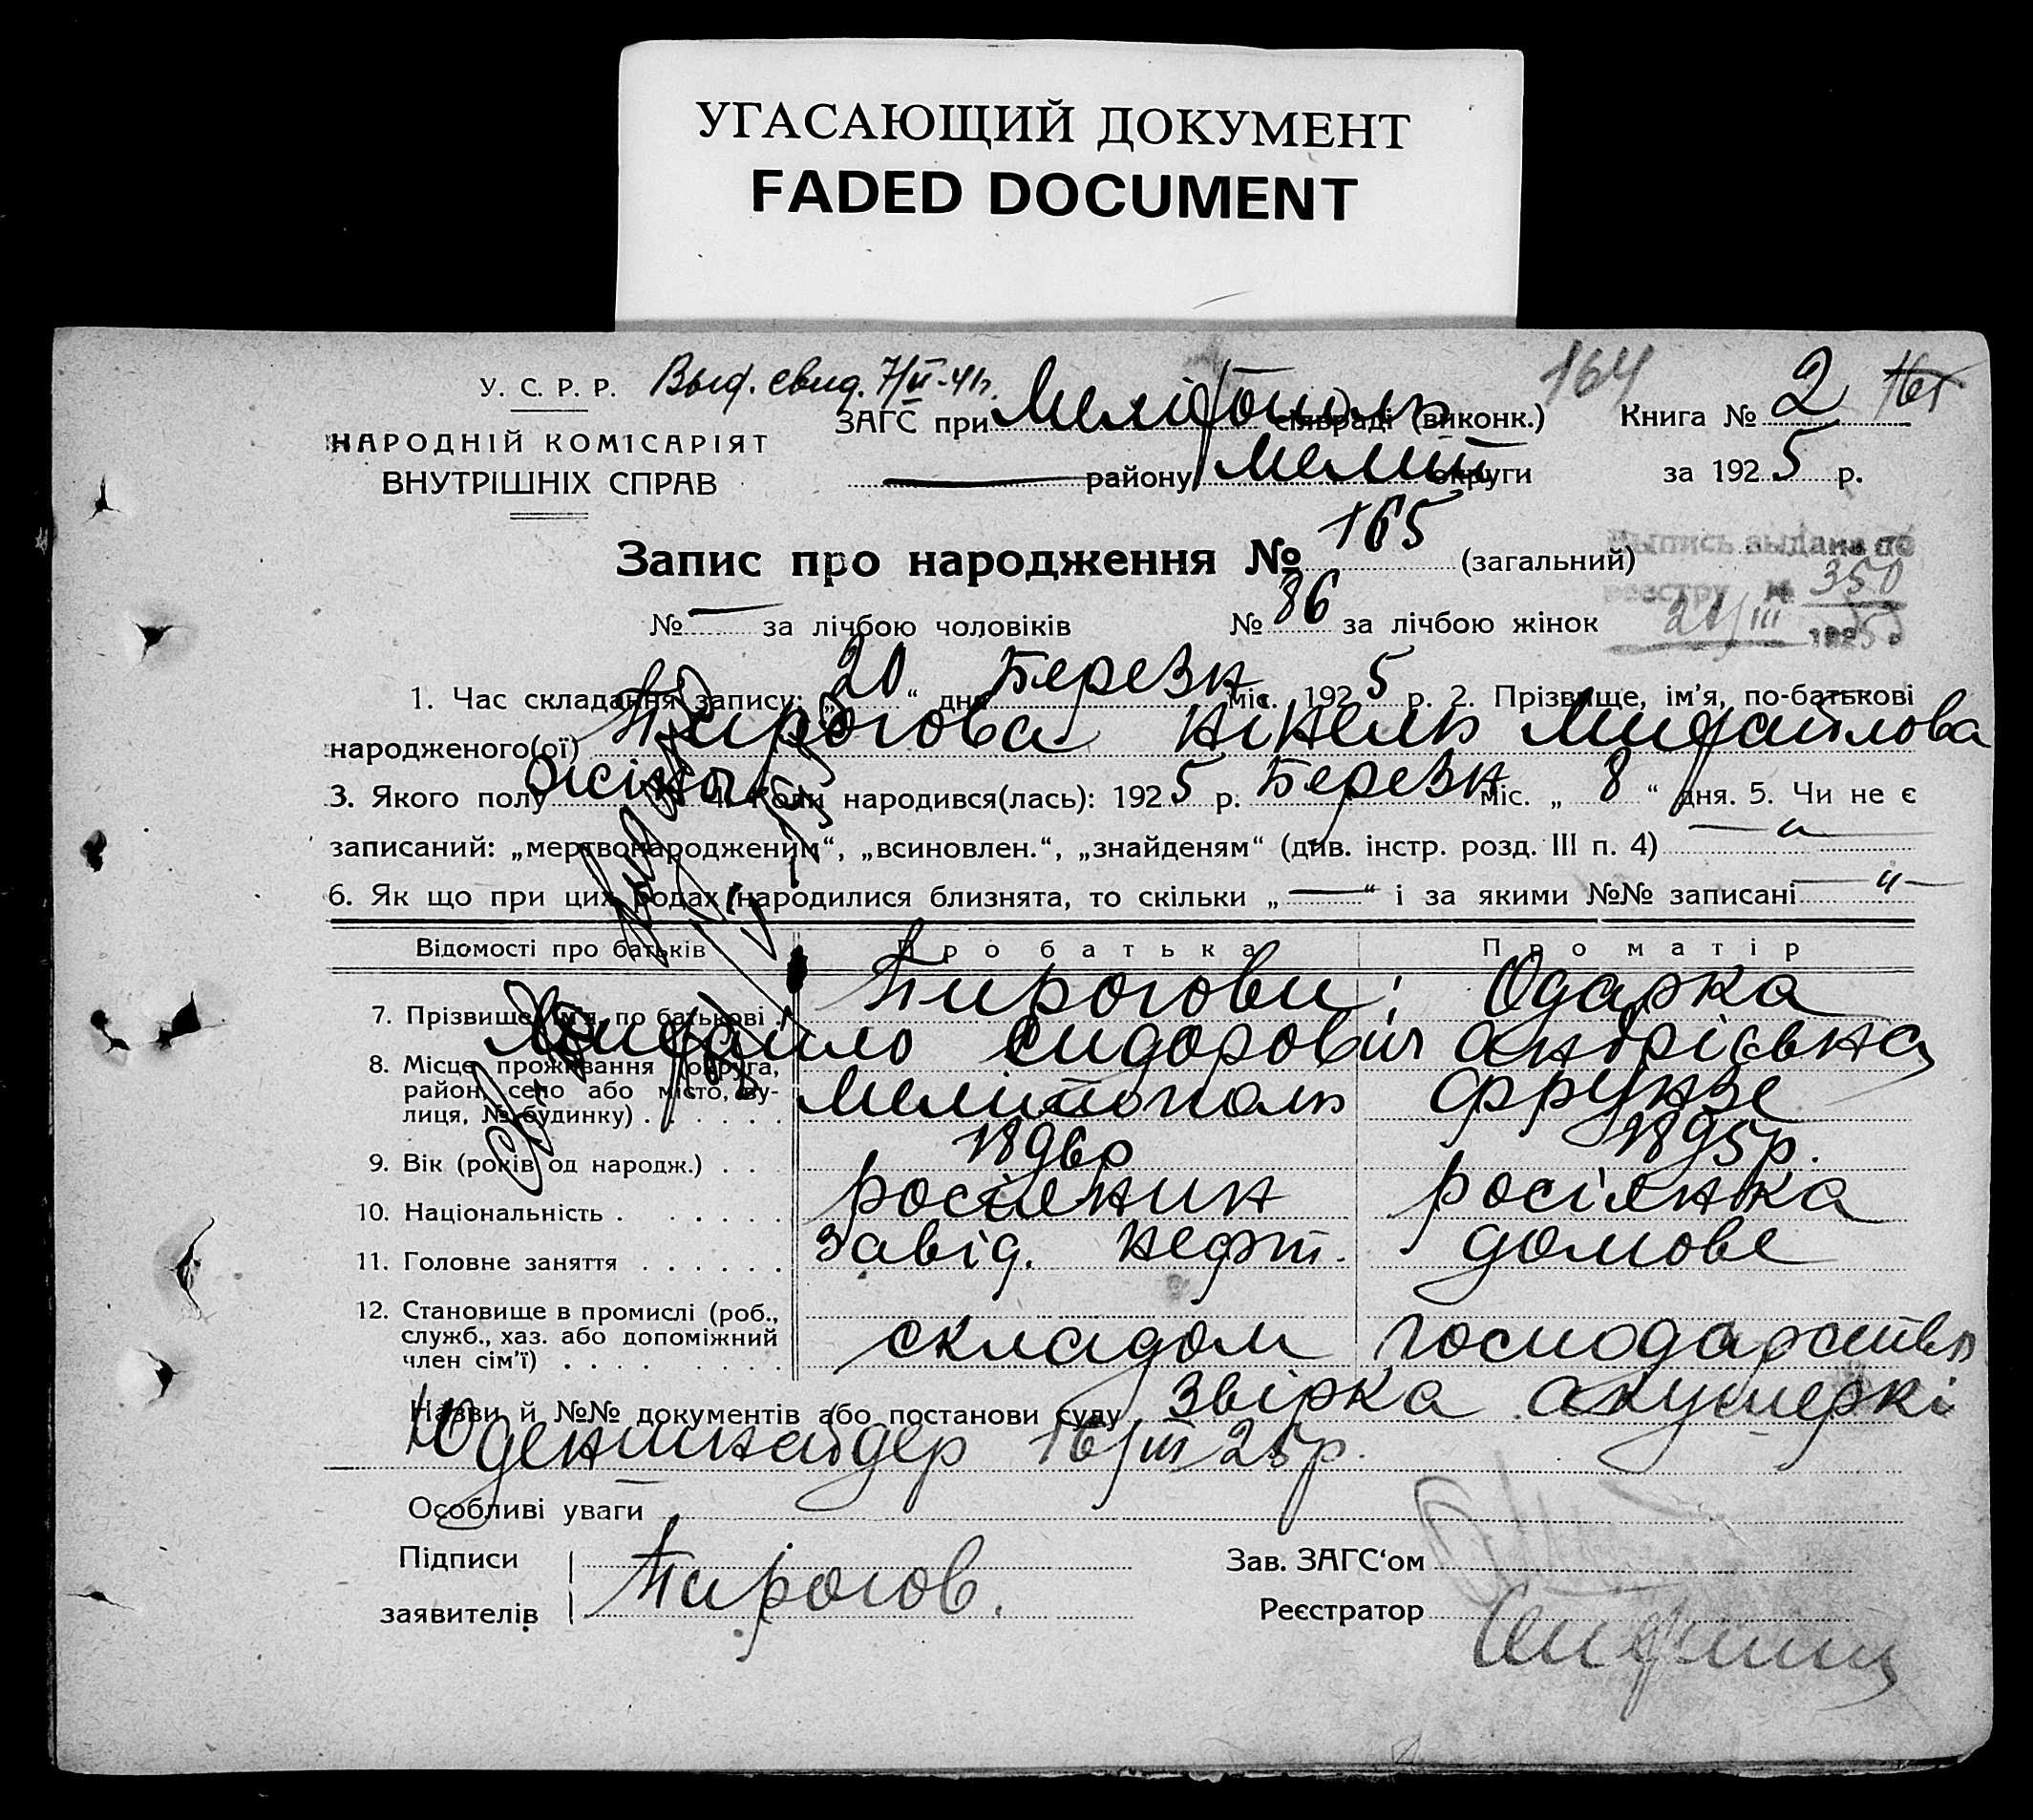 УГАСАЮЩИЙ ДОКУМЕНТ
FADED DOCUMENT
У. С. Р. Р. Выд. свид. 7/II-41г. 164
НАРОДНІЙ КОМІСАРІЯТ
ВНУТРІШНІХ СПРАВ
ЗАГС при Мелітополь сільраді (виконк.) Книга № 2
району Меліт округи за 1925 р.
Запис про народження № 165 (загальний)
Выпись выдана по
реестру № 350
21/III 1925
№ — за лічбою чоловіків № 86 за лічбою жінок
1. Час складання запису: „20“ дня Березн міс. 1925 р. 2. Прізвище, ім'я, по-батькові
народженого(ої) Пирогова Нінель Михайлова
3. Якого полу жіноч 4. Коли народився(лась): 1925 р. Березн міс. „8“ дня. 5. Чи не є
записаний: „мертвонародженим“, „всиновлен.“, „знайденям“ (див. інстр. розд. III п. 4) — „ —
6. Як що при цих родах народилися близнята, то скільки „—“ і за якими №№ записані — „ —
Відомості про батьків Про батька Про матір
7. Прізвище, ім'я, по батькові Пирогови: Одарка
Михайло Сидорович Андріївна
8. Місце проживання (округа,
район, село або місто, ву-
лиця, № будинку) . . . . . . Мелітополь Фрунзе
9. Вік (років од народж.) . . 1896р 1895р.
10. Національність . . . . . . росіянин росіянка
11. Головне заняття . . . . . . завід. нефт. домове
12. Становище в промислі (роб.,
служб., хаз. або допоміжний
член сім'ї) . . . . складом господарство
Назви й №№ документів або постанови суду Звірка акушеркі
Юденшнайдер 16/III 25р.
Особливі уваги
Підписи Пирогов. Зав. ЗАГС'ом
заявителів Реєстратор